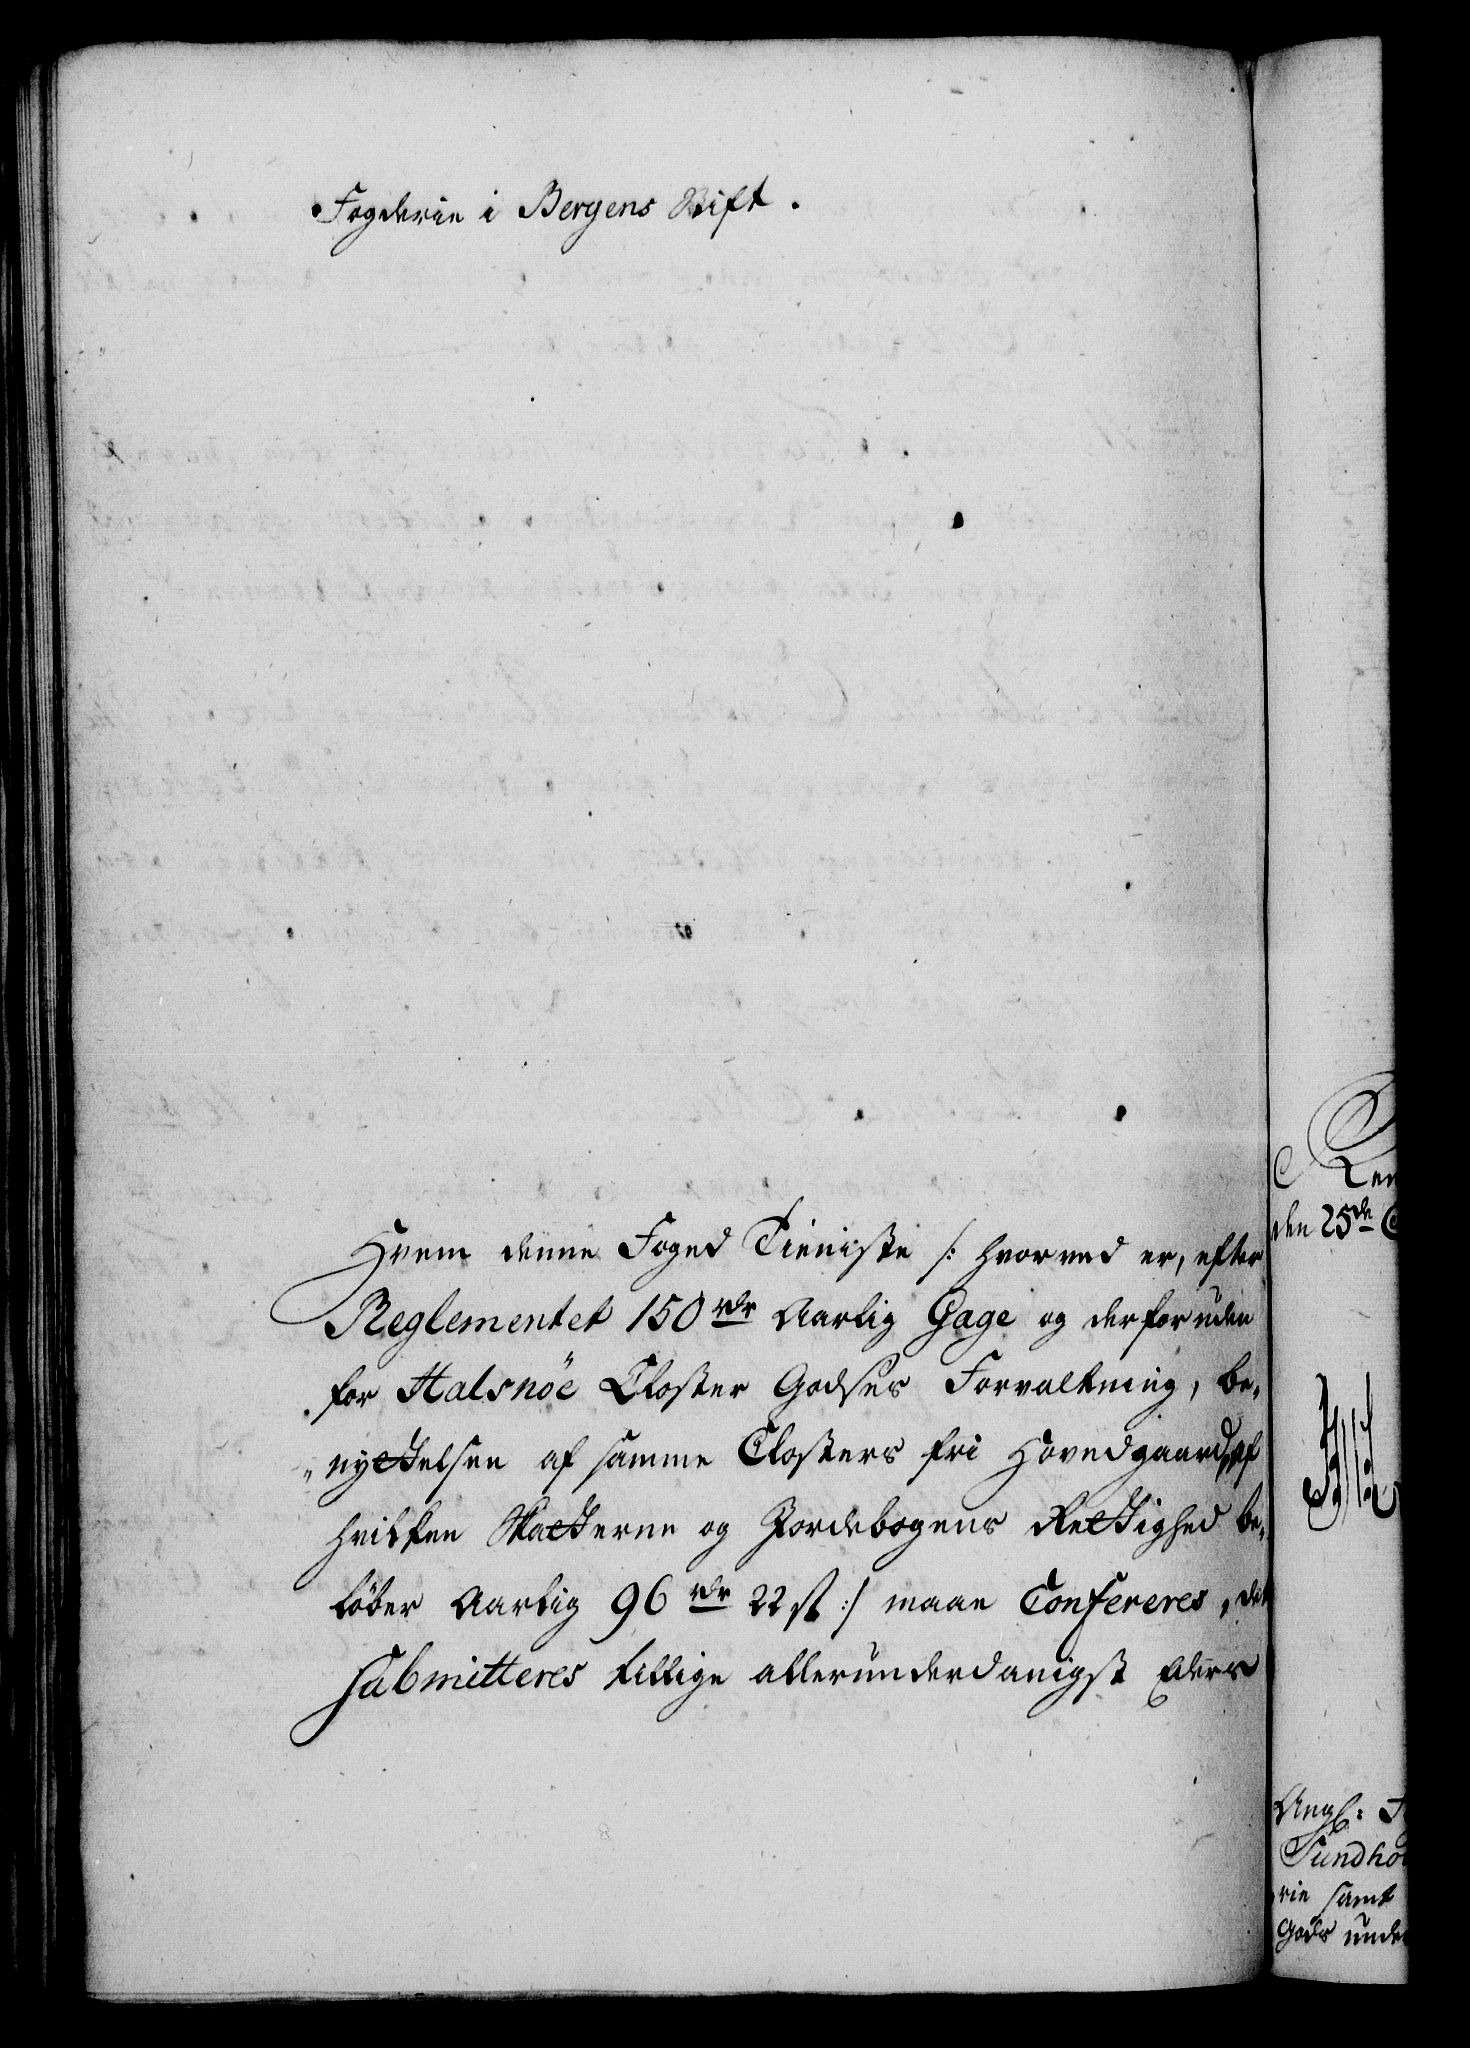 Fogderie i Bergens Stift.
Hvem denne Foged Tieniste /: hvorved er, efter
Reglementet 150 rdr Aarlig Gage og derforuden
for Halsnöe Closter Godses Forvaltning, be-
nyttelsen af samme Closters fri Hovedgaard, af
hvilken Skatterne og Jordebogens Rettighed be-
löber Aarlig 96 rdr 22 s :/ maae Confereres, det
submitteres tillige allerunderdanigst Eders
den 25de
Angl:
Sundho
rie samt
Gods unde